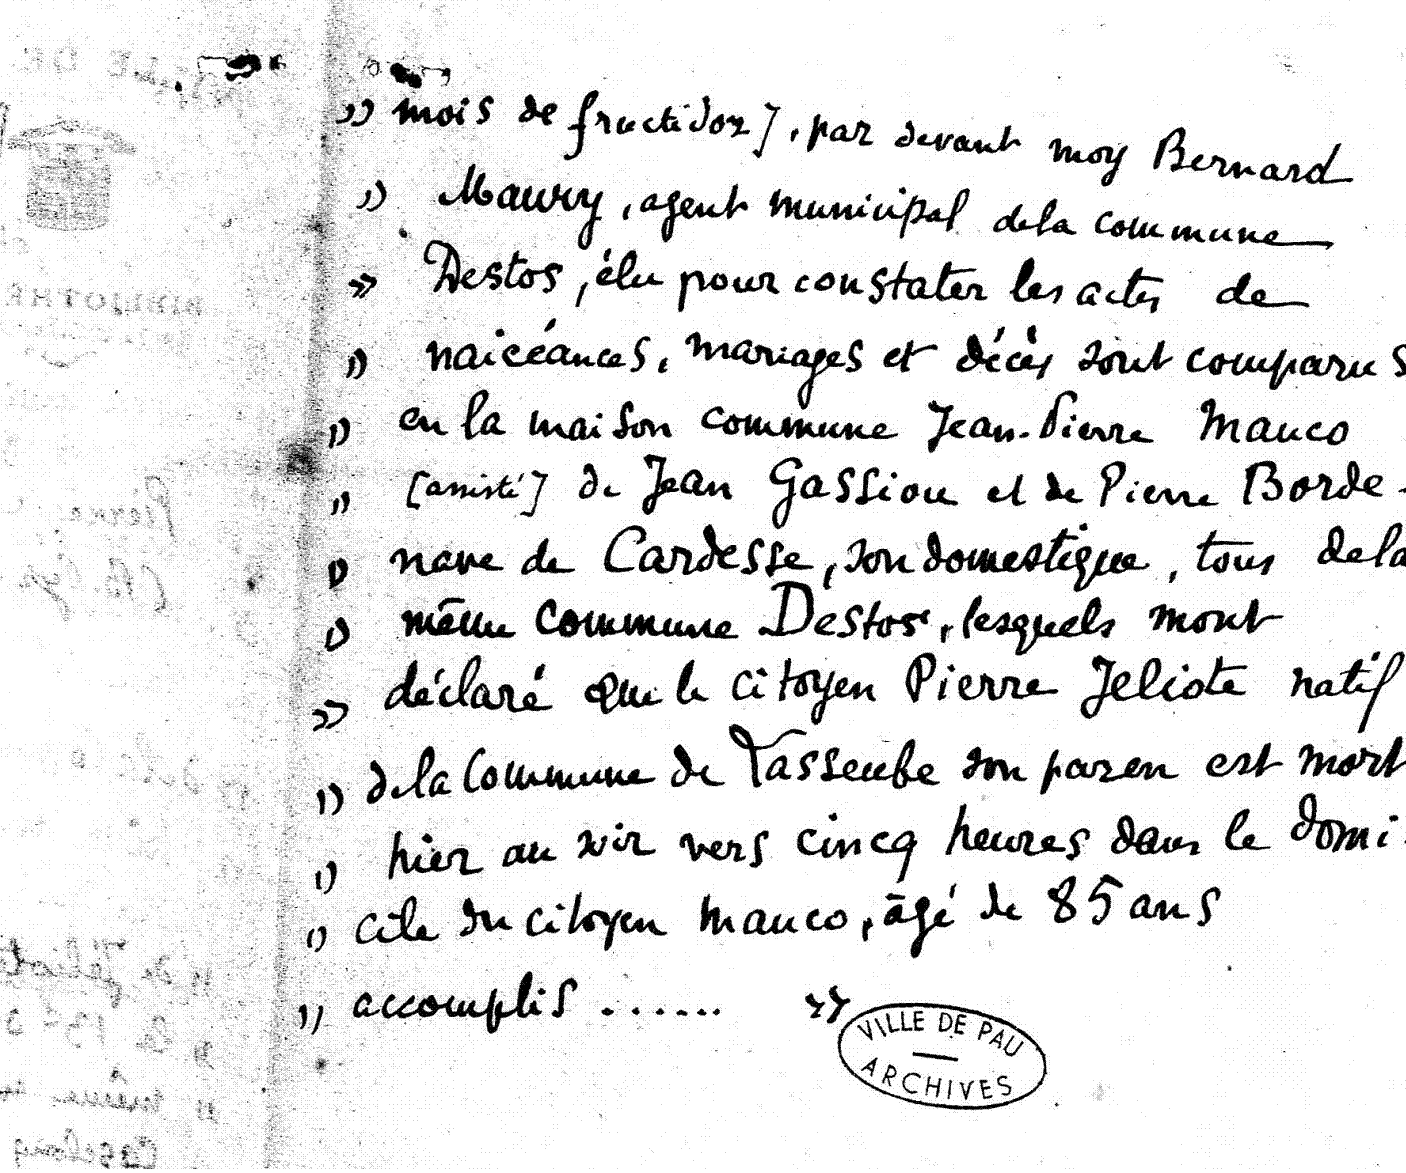 " mois de fructidor], par devant moy Bernard
" Maury, agent municipal dela commune
" Destos, élu pour constater les actes de
" naicéances, mariages et décès sont comparus
" en la maison commune Jean-Pierre Mauco
" [assisté] de Jean Gassiou et de Pierre Borde-
" nave de Cardesse, son domestique, tous dela
" même commune Destos, lesquels mont
" déclaré que le citoyen Pierre Jeliote natif
" de la Commune de Lasseube son paren est mort
" hier au soir vers cincq heures dans le domi-
" cile du citoyen Mauco, âgé de 85 ans
" accomplis ...... "
VILLE DE PAU
ARCHIVES